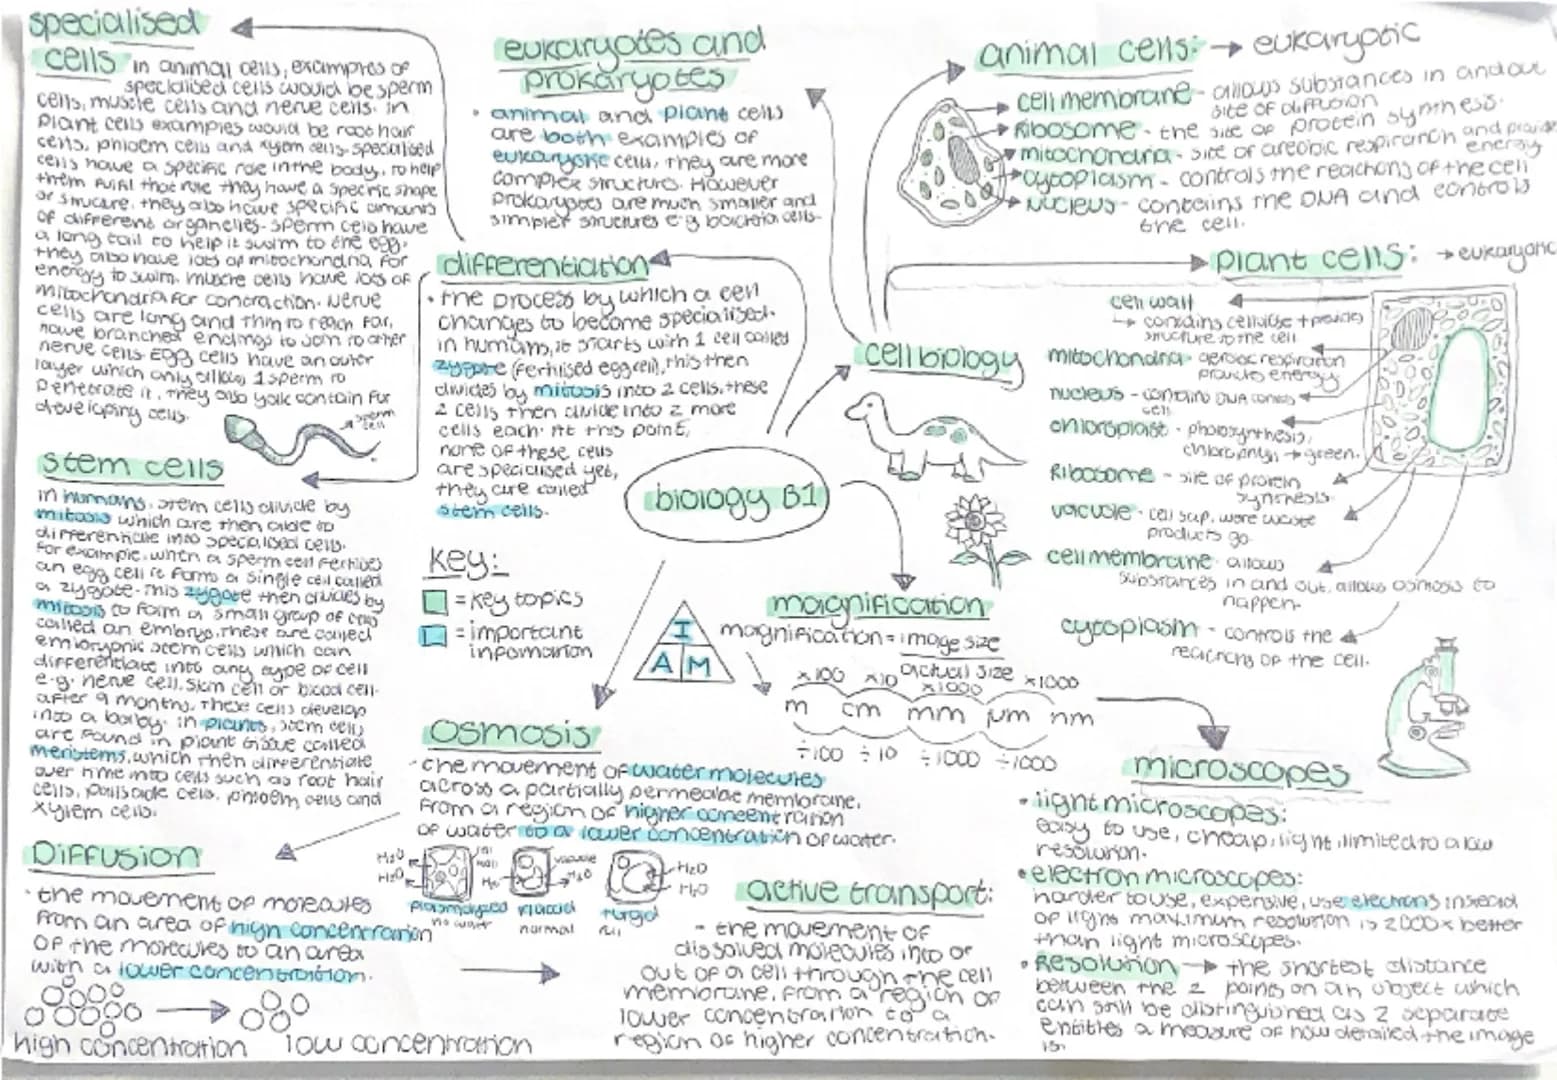 specialised
cells in animal cells, examples of
specialised cells would be sperm
cells, muscle cells and nerve cells. in
plant cells examples would be root hair
cells, phloem cells and xylem cells. specialised
cells have a specific role in the body, to help
them fulfil that role they have a specific shape
or structure, they also have specific amounts
of different organelles. sperm cells have
a long tail to help it swim to the egg,
they also have lots of mitochondria for
energy to swim. muscle cells have lots of
mitochondria for contraction. nerve
cells are long and thin to reach far,
have branched endings to join to other
nerve cells. Egg cells have an outer
layer which only allows 1 sperm to
penetrate it, they also yolk contain for
developing cells.
sperm
cell
stem cells
in humans, stem cells divide by
mitosis which are then able to
differentiate into specialised cells.
for example, when a sperm cell fertilises
an egg cell it forms a single cell called
a zygote. this zygote then divides by
mitosis to form a small group of cells
called an embryo. these are called
embryonic stem cells which can
differentiate into any type of cell
e.g. nerve cell, skin cell or blood cell.
after 9 months, these cells develop
into a baby. in plants, stem cells
are found in plant tissue called
meristems, which then differentiate
over time into cells such as root hair
cells, palisade cells, phloem cells and
xylem cells.
Diffusion
· the movement of molecules
from an area of high concentration
of the molecules to an area
with a lower concentration.
high concentration
low concentration
eukaryotes and
prokaryotes
· animal and plant cells
are both examples of
eukaryotic cells, they are more
complex structures. However
prokaryotes are much smaller and
simpler structures e.g bacteria cells.
differentiation
· the process by which a cell
changes to become specialised.
in humans, it starts with 1 cell called
zygote (fertilised egg cell), this then
divides by mitosis into 2 cells, these
2 cells then divide into 2 more
cells each. At this point,
none of these cells
are specialised yet,
they are called
stem cells.
key:
= key topics
= important
information
biology B1
cell biology
animal cells: → eukaryotic
cell membrane - allows substances in and out
site of diffusion
Ribosome - the site of protein synthesis.
mitochondria - site of areobic respiration and provide
energy
cytoplasm - controls the reactions of the cell
nucleus - contains the DNA and controls
the cell.
plant cells: → eukaryotic
cell wall
↳ contains cellulose + provides
structure to the cell
mitochondria - aerobic respiration
provides energy
nucleus - contains DNA controls
cell.
chloroplast - photosynthesis,
chlorophyll → green.
Ribosome - site of protein
synthesis.
vacuole - cell sap, were waste
products go
cell membrane - allows
substances in and out, allows osmosis to
happen.
cytoplasm - controls the
reactions of the cell.
magnification
magnification = image size
actual size
I
A M
×100 ×10 ×1000 ×1000
m cm mm μm nm
÷100 ÷10 ÷1000 ÷1000
osmosis
· the movement of water molecules
across a partially permeable membrane,
from a region of higher concentration
of water to a lower concentration of water.
H₂O
H₂O
cell
wall
H₂O
vacuole
H₂O
H₂O
H₂O
plasmolyzed
no water
flaccid
normal
turgid
full
active transport:
- the movement of
dissolved molecules into or
out of a cell through the cell
membrane, from a region of
lower concentration to a
region of higher concentration.
microscopes
· light microscopes:
easy to use, cheap, light, limited to a low
resolution.
· electron microscopes:
harder to use, expensive, use electrons instead
of light maximum resolution is 2000x better
than light microscopes.
· Resolution → the shortest distance
between the 2 points on an object which
can still be distinguished as 2 separate
entities a measure of how detailed the image
is.